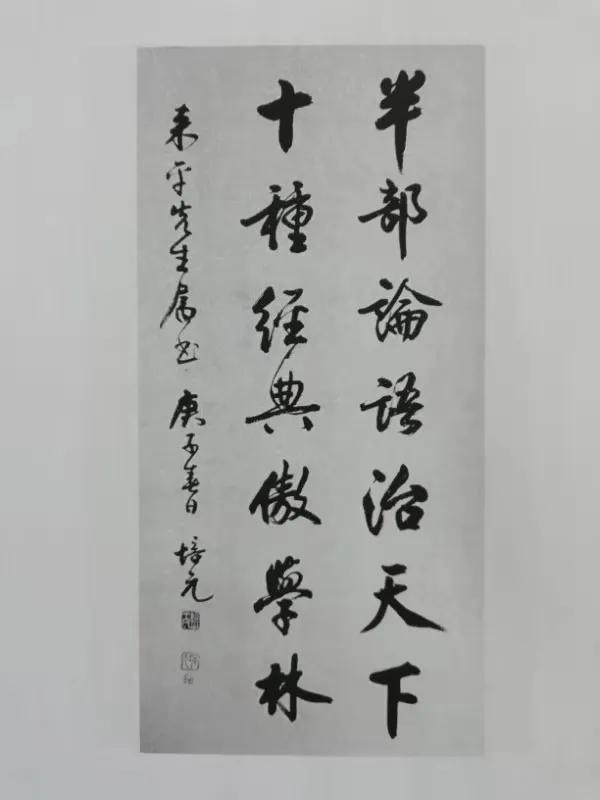 半部論語治天下
十種經典傲學林
來平先生屬書 庚子春日 培元